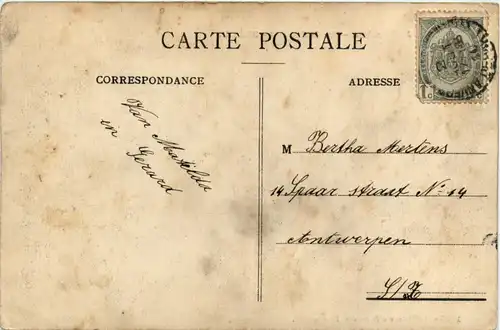 CARTE POSTALE
CORRESPONDANCE
ADRESSE
Van Matilda
en Gerard
M Bertha Mertens
14 Spaar straat No 14
Antwerpen
S/Z